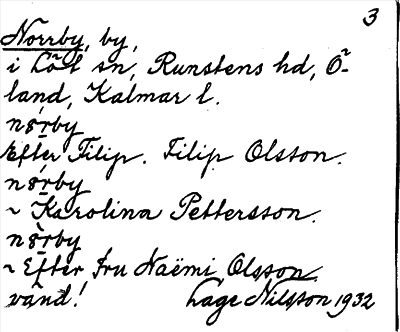 3
Norrby, by,
i Löt sn, Runstens hd, Ö-
land, Kalmar l.
nørby
Efter Filip. Filip Olsson.
nørby
~ Karolina Pettersson.
nørby
~ Efter fru Naëmi Olsson.
vänd! Lage Nilsson 1932